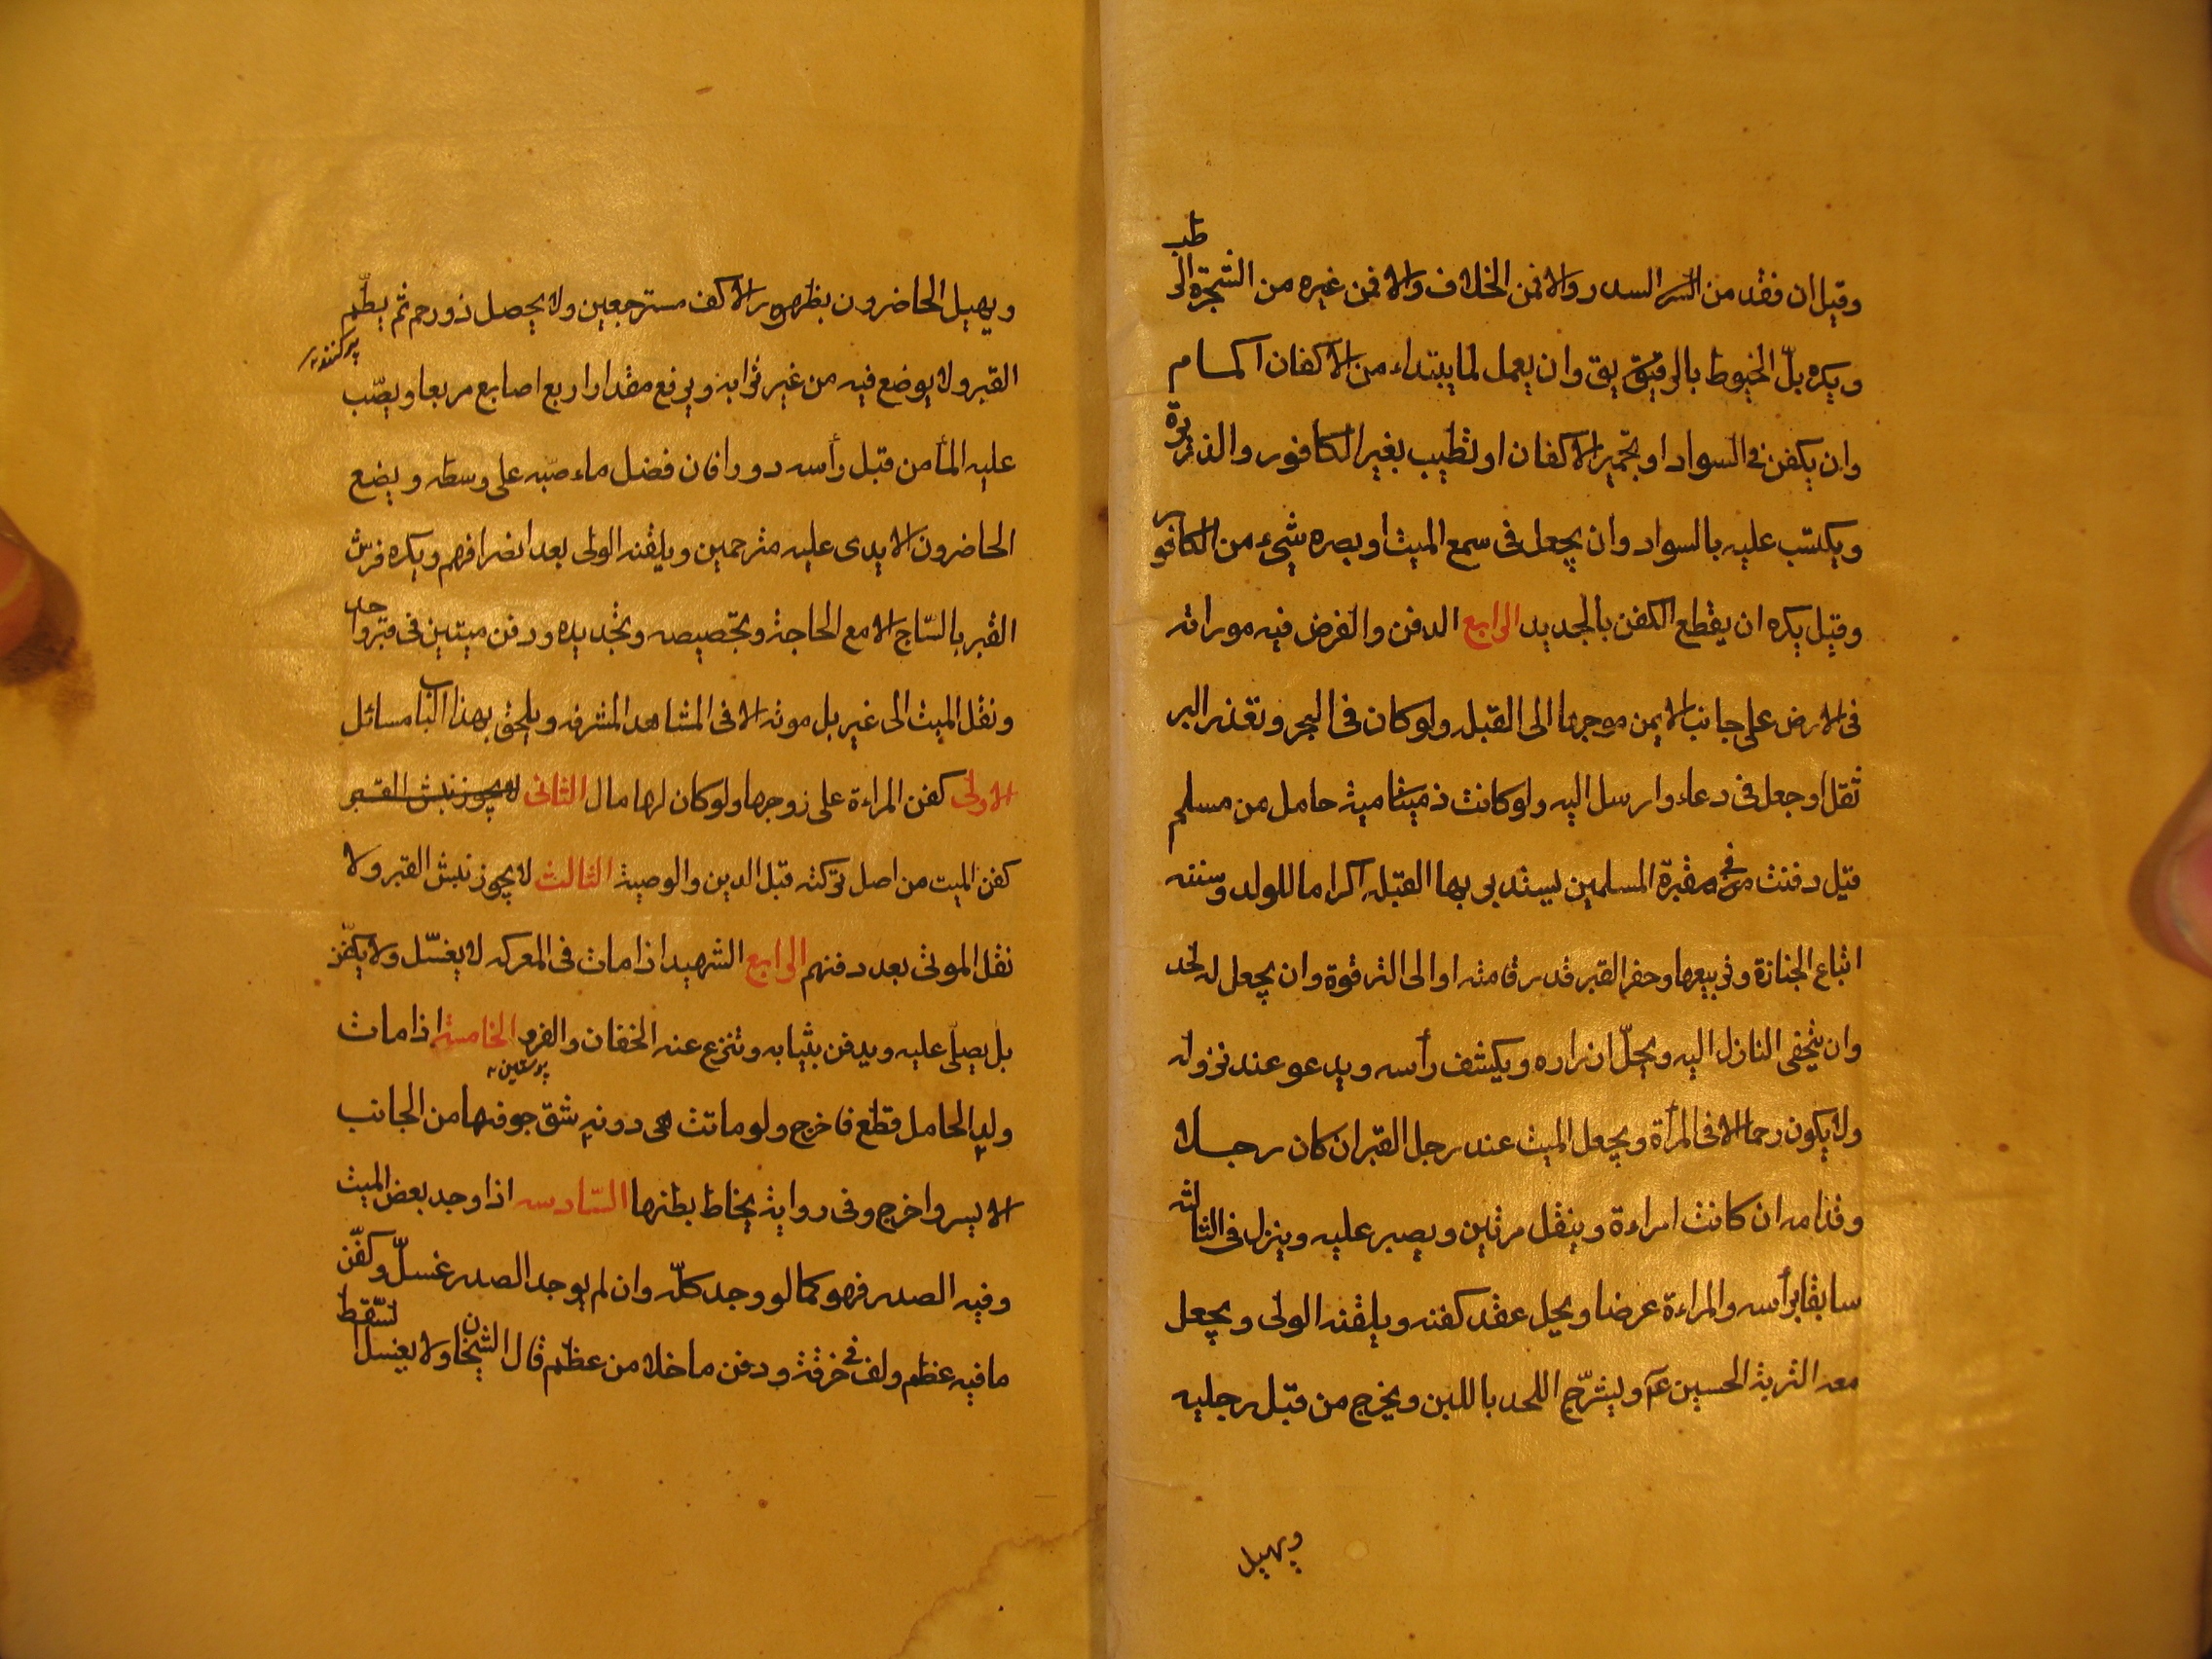 وقيل ان فقد من السدر والا فمن الخلاف والا فمن غيره من الشجرة الرطب
ويكره بلّ الخيوط بالريق وان يعمل لما يبتداء من الاكفان اكمام
وان يكفن فى السواد او يجمّر الاكفان او تطيب بغير الكافور والذريرة
ويكتب عليه بالسواد وان يجعل فى سمع الميت او بصره شيء من الكافور
وقيل يكره ان يقطع الكفن بالحديد الرابع الدفن والفرض فيه موراته
فى الارض على جانب الايمن موجها الى القبله ولو كان فى البحر وتعذر البر
ثقل او جعل فى دعاء وارسل اليه ولو كانت ذمية حامل من مسلم
قيل دفنت فى مقبرة المسلمين يستدبر بها القبله اكراما للولد وسننه
اتباع الجنازة وتربيعها وحفر القبر قدر قامته او الى الترقوة وان يجعل له لحد
وان يتحفى النازل اليه ويحلّ ازراره ويكشف رأسه ويدعو عند نزوله
ولا يكون رحما الا فى المرأة ويجعل الميت عند رجل القبر ان كان رجلا
وقدامه ان كانت امراءة وينقل مرتين ويصبر عليه وينزل فى الثالثه
سابقا برأسه والمراءة عرضا ويحل عقد كفنه ويلقنه الولى ويجعل
معه التربة الحسين ع‍م ويشرّج اللحد باللبن ويخرج من قبل رجليه
ويهيل
ويهيل الحاضرون بظهور الاكف مسترجعين ولا يحصل ذو رحم ثم يطمّ
پر كنند
القبر ولا يوضع فيه من غير ترابه ويرفع مقدار اربع اصابع مربعا ويصّب
عليه الماٴ من قبل رأسه دورا فان فضل ماء صبّه على وسطه ويضع
الحاضرون الايدى عليه مترحمين ويلقنه الولى بعد انصرافهم ويكره فرش
القبر بالسّاج الا مع الحاجة وتجصيصه وتجديده ودفن ميتين فى قبر واحد
ونقل الميت الى غير بل موته الا فى المشاهد المشرفه ويلحق بهذا الباب مسائل
الاولى كفن المراءة على زوجها ولو كان لها مال الثانى لا يجوز نبش القبر
كفن الميت من اصل تركته قبل الدين والوصية الثالث لا يجوز نبش القبر ولا
نقل الموتى بعد دفنهم الرابع الشهيد اذا مات فى المعركه لا يغسّل ولا يكفّن
بل يصلّى عليه ويدفن بثيابه وتنزع عنه الخفان والفرو الخامسة اذا مات
پوستين
ولد الحامل قطع فاخرج ولو ماتت هى دونه شقّ جوفها من الجانب
الايسر واخرج وفى رواية يخاط بطنها السّادسه اذا وجد بعض الميت
وفيه الصدر فهو كما لو وجد كلّه وان لم يوجد الصدر غسلّ وكفّن
ما فيه عظم ولف فى خرقة ودفن ما خلا من عظم قال الشيخان ولا يغسل السّقط